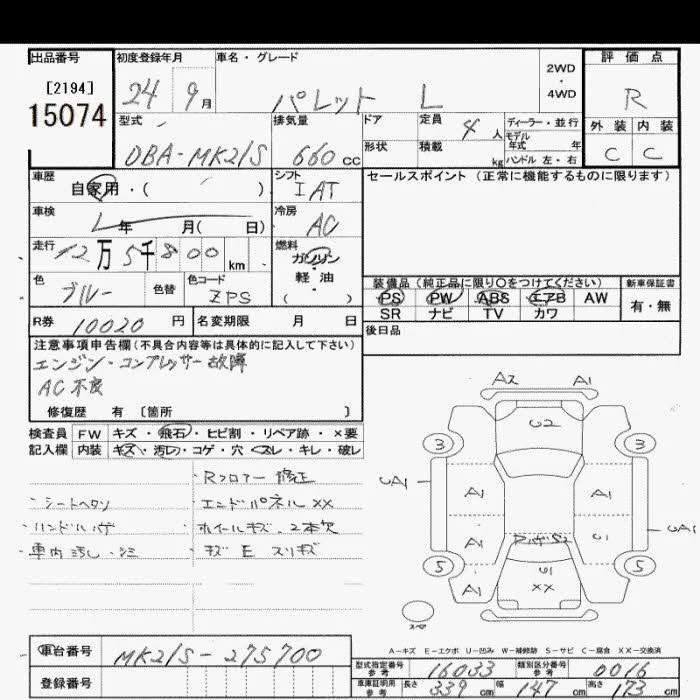 出品番号 初度登録年月 車名・グレード 2WD・4WD 評価点
[2194]
15074 24 9月 パレット L R
型式 排気量 ドア 定員 4人 ディーラー・並行 外装 内装
モデル年式 年
DBA-MK21S 660cc 形状 積載 kg ハンドル 左・右 C C
車歴 シフト セールスポイント (正常に機能するものに限ります)
自家用・( ) IAT
車検 冷房
年 月( 日) AC
走行 燃料
12万5千800km ガソリン
軽・油
( )
色 色替 色コード 装備品 (純正品に限り○をつけてください) 新車保証書
ブルー ZPS PS PW ABS エアB AW 有・無
SR ナビ TV カワ
R券 10020円 名変期限 月 日 後日品
注意事項申告欄(不具合内容等は具体的に記入して下さい)
エンジン・コンプレッサー故障
AC不良
修復歴 有 [箇所 ]
検査員 FW キズ・飛石・ヒビ割・リペア跡・×要
記入欄 内装 キズ・汚レ・コゲ・穴・スレ・キレ・破レ
・Rフロアー修正
・シートヘタリ ・エンドパネルXX
・ハンドルハゲ ・ホイールキズ、2本欠
・車内汚レ・シミ ・キズE スリキズ
A2 A1
U2
3 3
UA1 A1 A1
UA1
A1 U1
5 5
U1
A1 XX
スペア
A-キズ E-エクボ U-凹み W-補修跡 S-サビ C-腐食 XX-交換済
車台番号 MK21S-275700 型式指定番号 参考 16033 類別区分番号 参考 0016
登録番号 車庫証明用 参考 長さ 339cm 幅 147cm 高さ 173cm